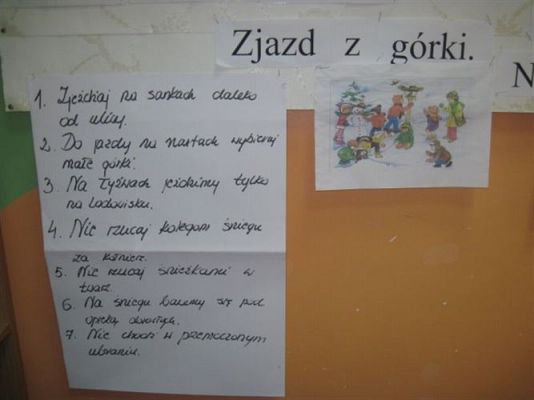 Zjazd z górki.
N
1. Zjeżdżaj na sankach daleko
od ulicy.
2. Do jazdy na nartach wybieraj
małe górki.
3. Na łyżwach jeździmy tylko
na lodowisku.
4. Nie rzucaj kolegom śniegu
za kołnierz.
5. Nie rzucaj śnieżkami w
twarz.
6. Na śniegu bawimy się pod
opieką dorosłych.
7. Nie chodź w przemoczonym
ubraniu.